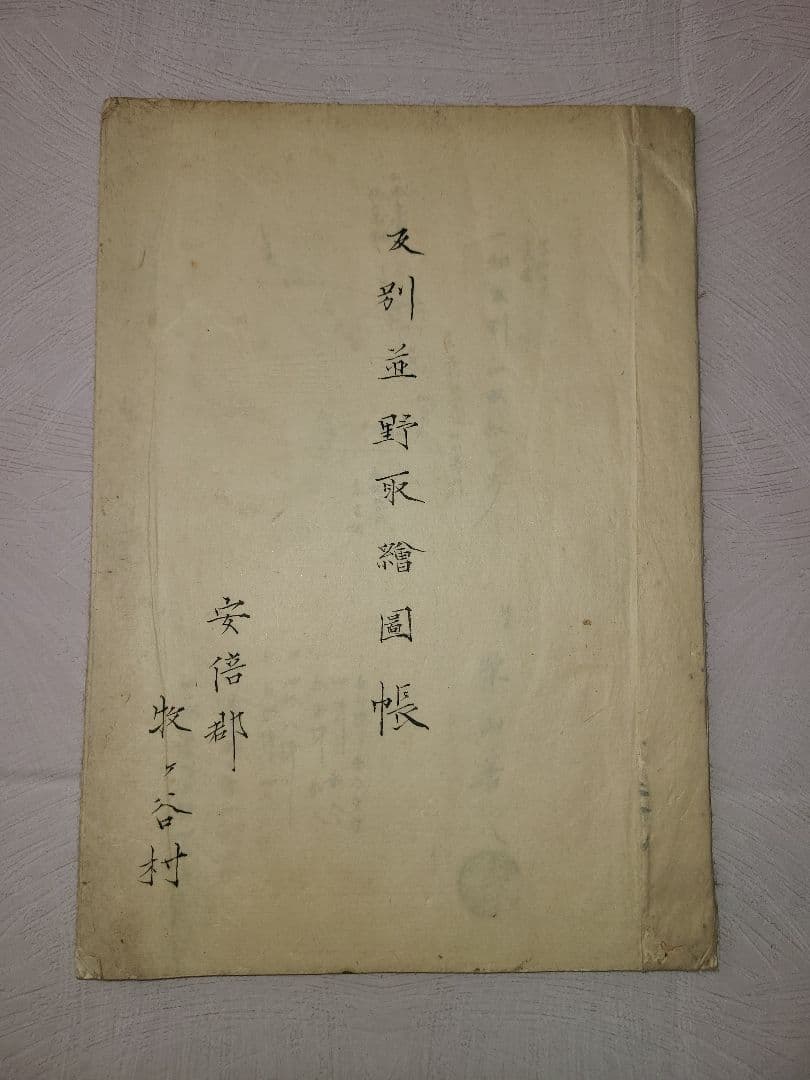 反別並野取繪圖帳
安倍郡
牧ヶ谷村